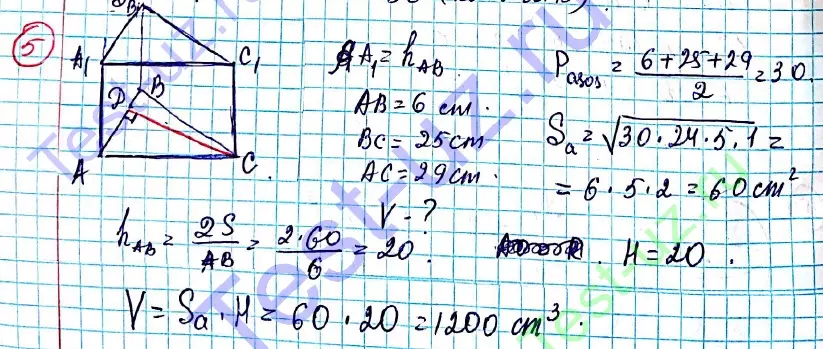 5
B₁
A₁ C₁
D B
A C
AA₁ = h_AB
AB = 6 cm.
BC = 25 cm
AC = 29 cm.
V - ?
P_asos = (6+25+29)/2 = 30.
S_a = √(30·24·5·1) =
= 6·5·2 = 60 cm²
h_AB = 2S/AB = 2·60/6 = 20.
H = 20.
V = S_a · H = 60 · 20 = 1200 cm³.
Test-uz.ru
Test-uz.ru
Test-uz.ru